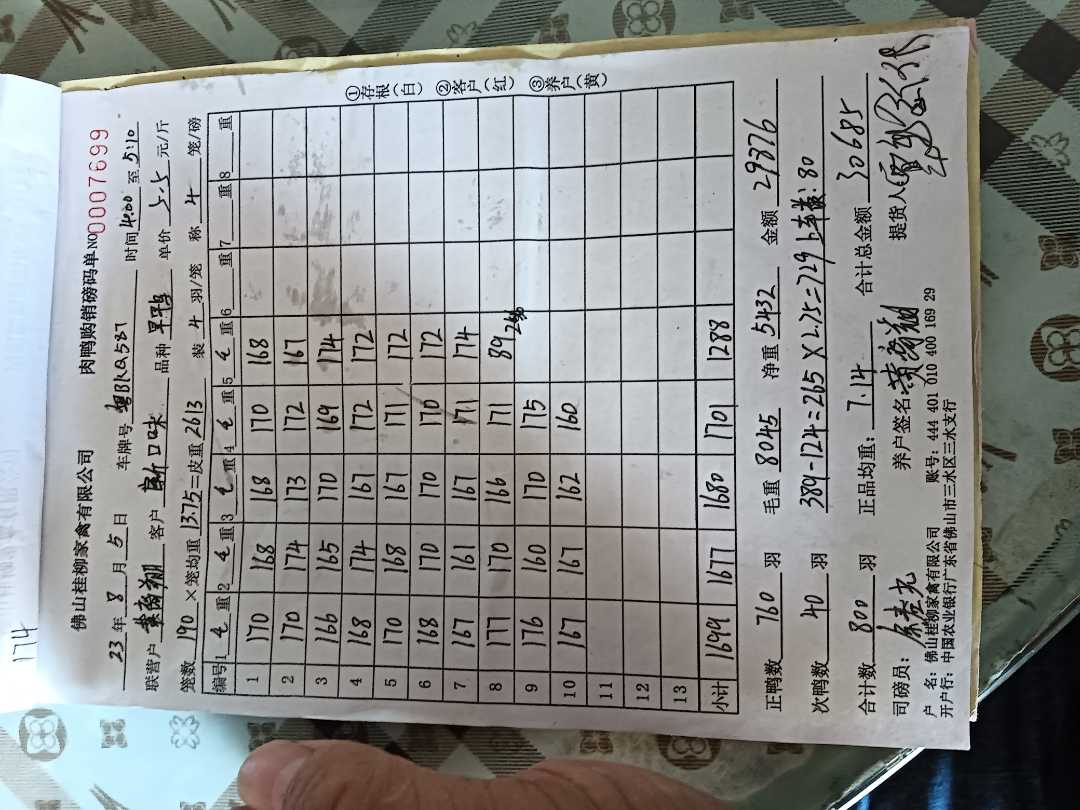 174
佛山桂柳家禽有限公司 肉鸭购销磅码单 NO 0007699
23 年 8 月 5 日 车牌号 粤BKQ587 时间 4:00 至 5:10
联营户 客户 新口味 品种 旱鸭 单价 5.5 元/斤
笼数 190 ×笼均重 13.75 =皮重 2613 装 4 羽/笼 称 4 笼/磅
编号 1 毛 重 2 毛 重 3 毛 重 4 毛 重 5 毛 重 6 重 7 重 8 重
1 170 168 168 170 168
2 170 174 173 172 167
3 166 165 170 169 174
4 168 174 167 172 172
5 170 168 167 171 172
6 168 170 170 170 172
7 167 161 167 171 174
8 177 170 166 171 89
9 176 160 170 175
10 167 167 162 160
11
12
13
小计 1699 1677 1680 1701 1288
①存根(白) ②客户(红) ③养户(黄)
正鸭数 760 羽 毛重 8045 净重 5432 金额 29876
次鸭数 40 羽 389-124=265×2.75=729 上车费:80
合计数 800 羽 正品均重: 7.14 合计总金额 30685
司磅员: 养户签名 提货人
户 名: 佛山桂柳家禽有限公司 账号: 444 401 010 400 169 29
开户行: 中国农业银行广东省佛山市三水区三水支行